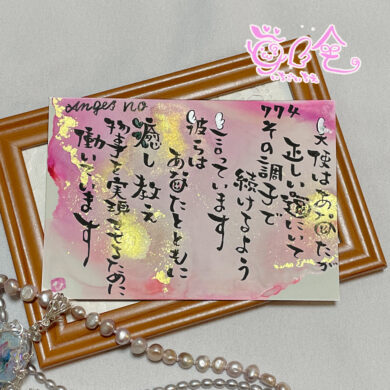 anges no
774
天使はあなたが
正しい道にいて
その調子で
続けるよう
言っています
彼らは
あなたとともに
癒し教え
物事を実現させるために
働いています